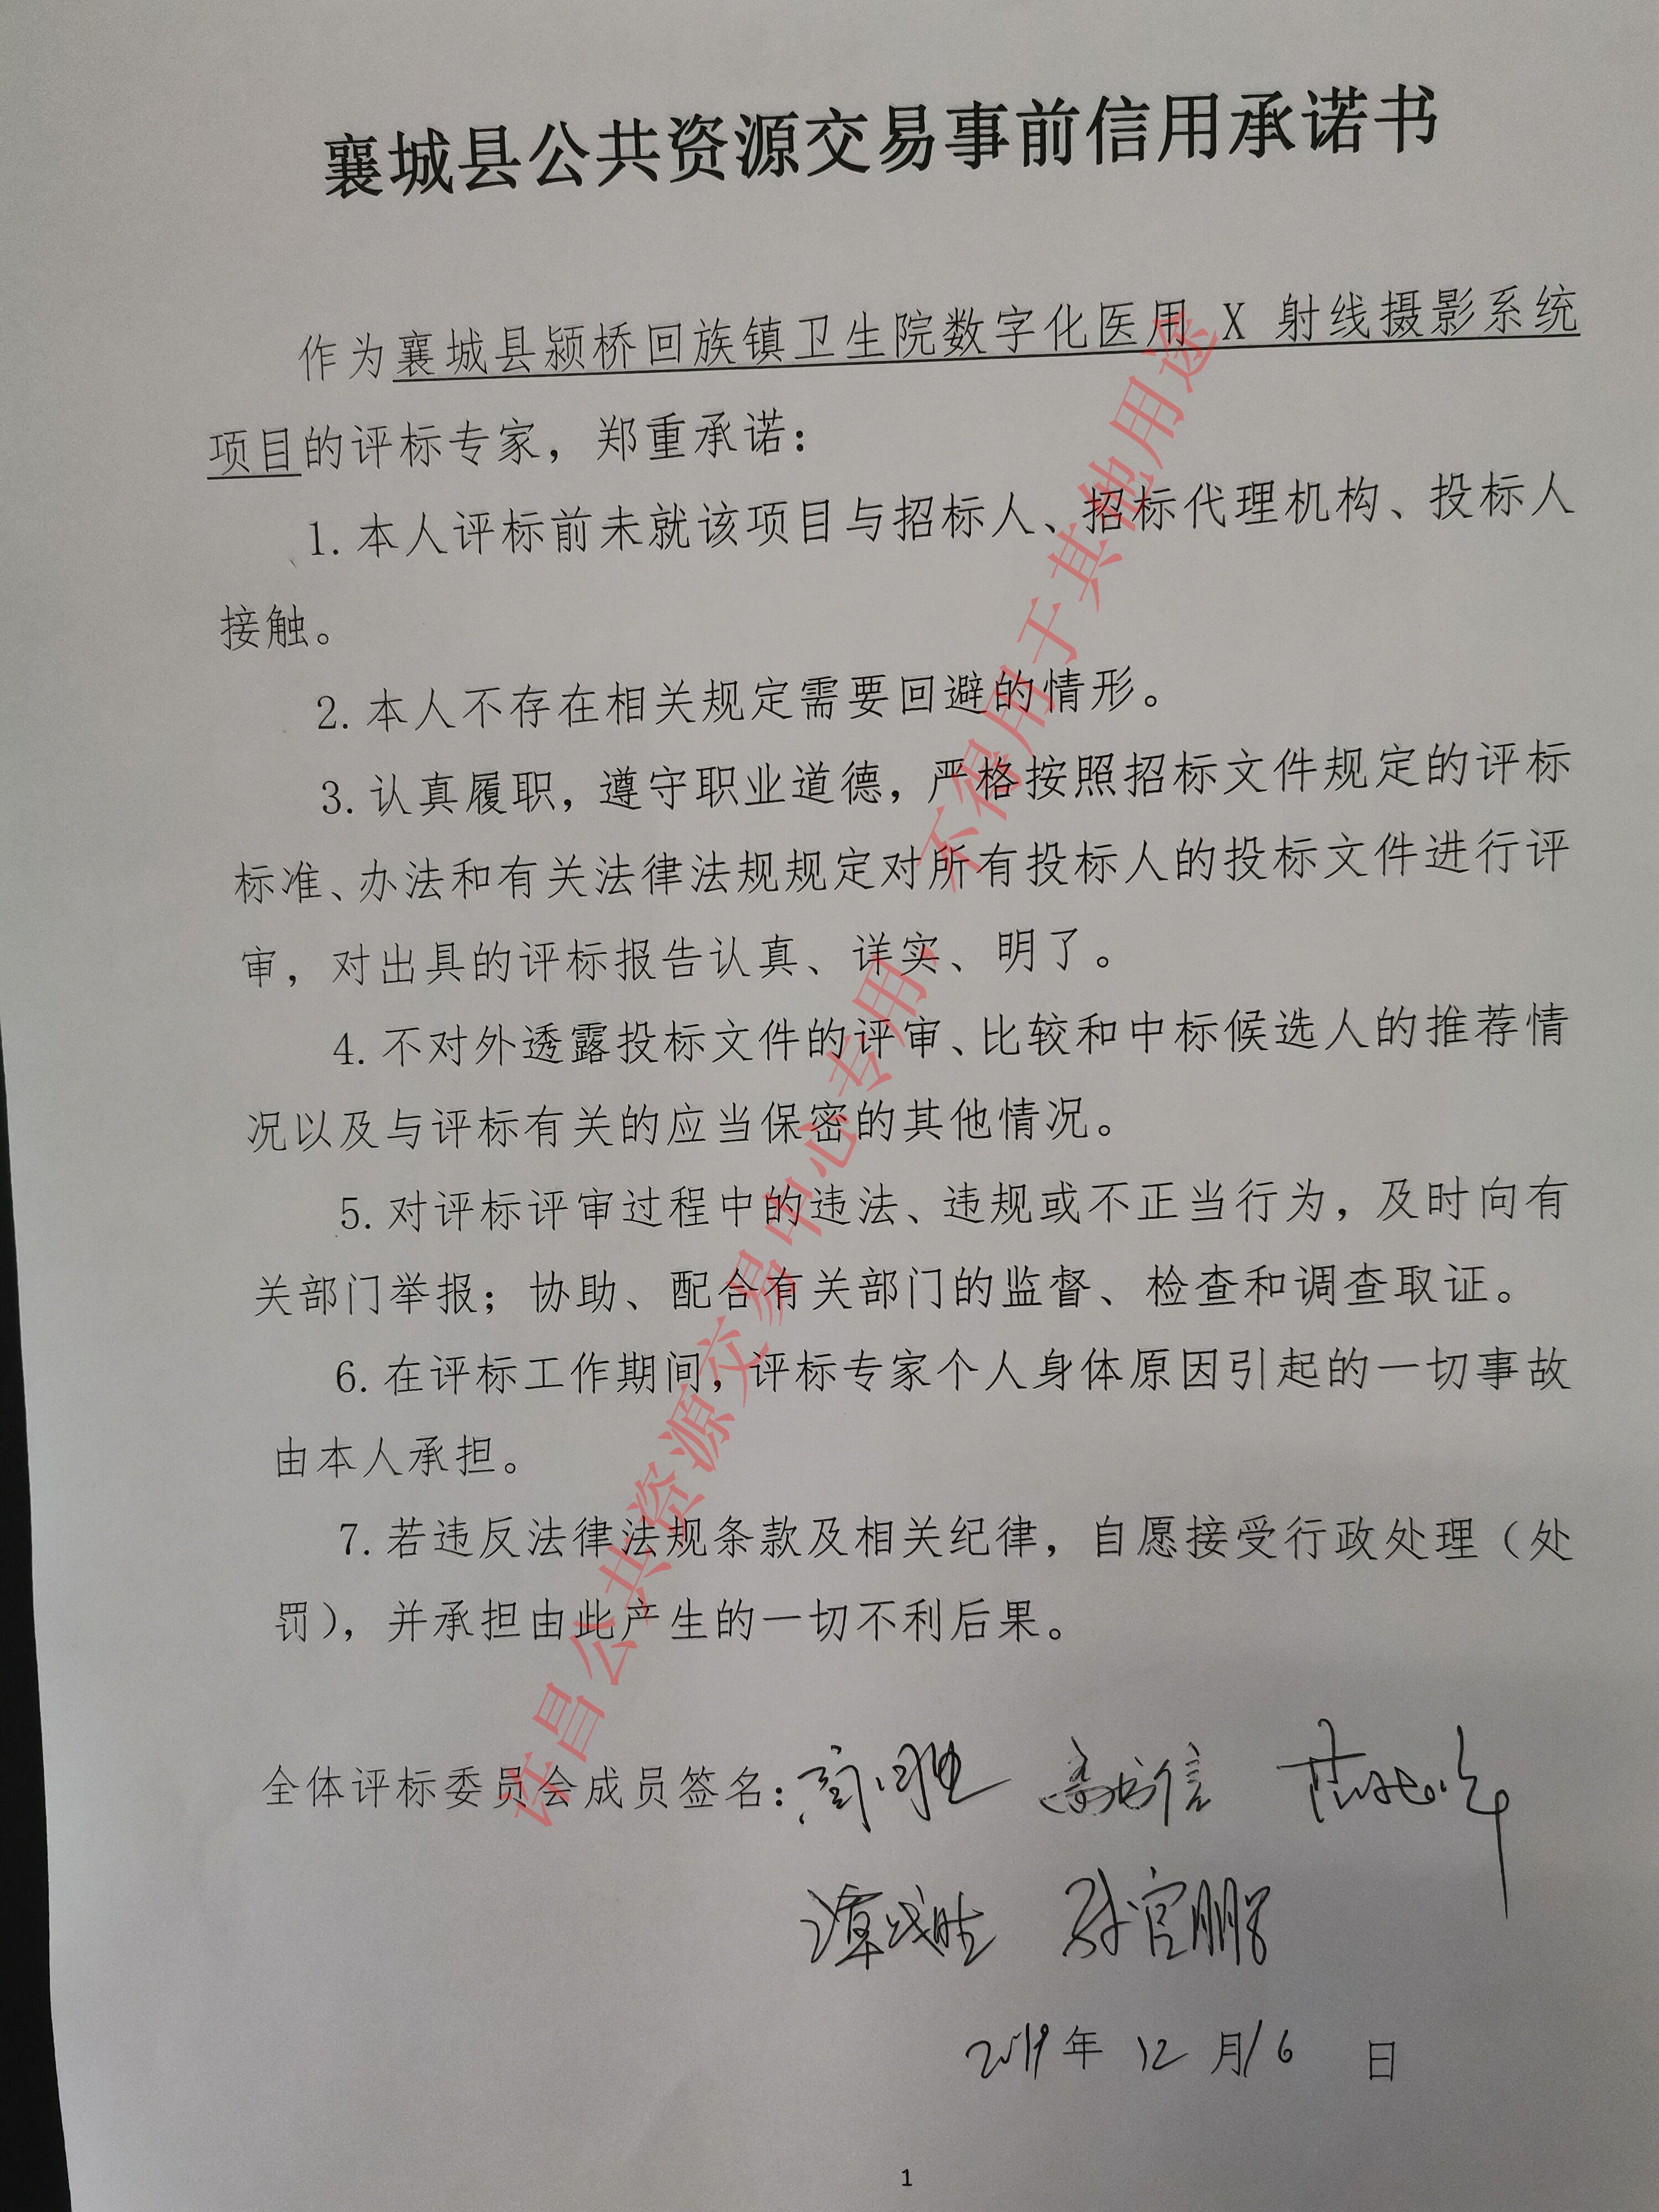 襄城县公共资源交易事前信用承诺书
作为襄城县颍桥回族镇卫生院数字化医用 X 射线摄影系统
项目的评标专家，郑重承诺：
1. 本人评标前未就该项目与招标人、招标代理机构、投标人
接触。
2. 本人不存在相关规定需要回避的情形。
3. 认真履职，遵守职业道德，严格按照招标文件规定的评标
标准、办法和有关法律法规规定对所有投标人的投标文件进行评
审，对出具的评标报告认真、详实、明了。
4. 不对外透露投标文件的评审、比较和中标候选人的推荐情
况以及与评标有关的应当保密的其他情况。
5. 对评标评审过程中的违法、违规或不正当行为，及时向有
关部门举报；协助、配合有关部门的监督、检查和调查取证。
6. 在评标工作期间，评标专家个人身体原因引起的一切事故
由本人承担。
7. 若违反法律法规条款及相关纪律，自愿接受行政处理（处
罚），并承担由此产生的一切不利后果。
全体评标委员会成员签名：
孙官鹏
2019年 12 月16 日
1
许昌公共资源交易中心专用，不得用于其他用途